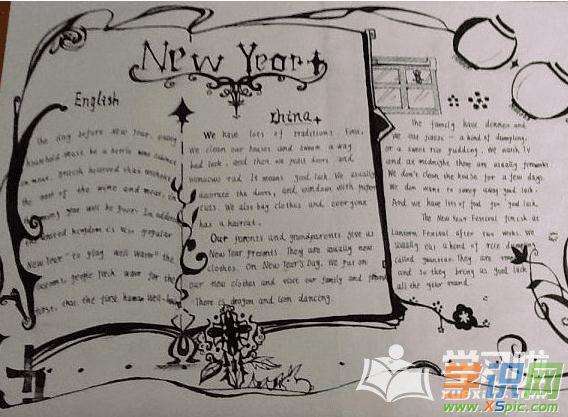 New Year
English
The day before New Year, every
household must be a bottle wine cabinet
in meat. British believed that without
the rest of the wine and meat in
year will be power. In addition
united kingdom is also popular
New Year "to play well water" the
people fetch water for the
first, that the first human well-being
China
We have lots of traditions. First,
We clean our houses and sweep a way
bad luck. And then we paste doors and
windows red. It means good luck. We usually
decorate the doors, and windom with paper
cuts. We also buy clothes and everyone
has a haircut.
Our parents and grandparents give us
New Year presents. They are usually new
clothes. On New Year's Day, We put on
our new clothes and visit our family and
There is dragon and lion dancing.
The family have dinner and
we eat jiaozi - a kind of dumpling,
or a sweet rice pudding. We watch TV
and at midnight there are usually fireworks
We don't clean the house for a few days.
We don want to sweep away good luck.
And we have lots of food for good luck
The New Year Festival finish at
Lantern Festival after two weeks. We
usually eat a kind of rice dumplings
called yuanxiao. They are
and so they bring us good luck
all the year round.
学识网
www.XSpic.com